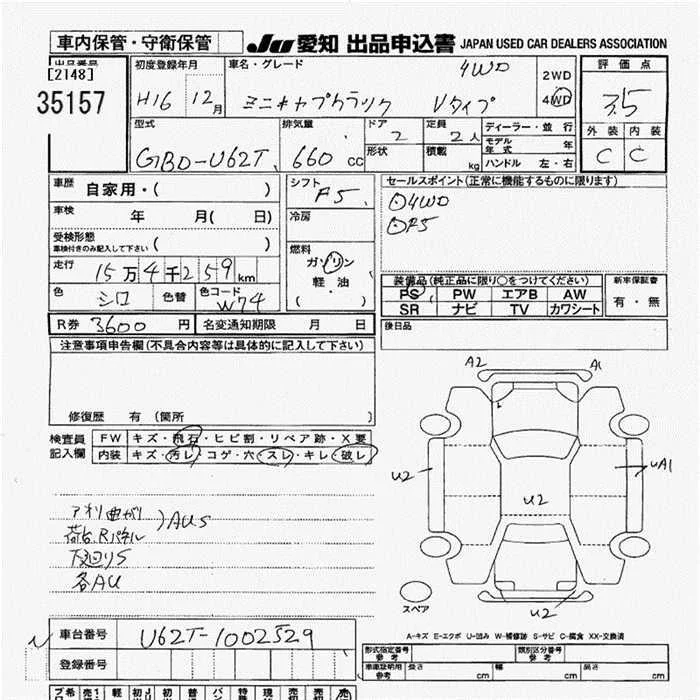 車内保管・守衛保管 JU 愛知 出品申込書 JAPAN USED CAR DEALERS ASSOCIATION
出品番号 初度登録年月 車名・グレード 4WD 2WD 評価点
[2148] 4WD
35157 H16 12月 ミニキャブトラック Vタイプ 3.5
型式 排気量 ドア 定員 ディーラー・並行 外装 内装
2 2人 モデル年式 年
GBD-U62T 660cc 形状 積載 kg ハンドル 左・右 C C
車歴 自家用・( ) シフト F5 セールスポイント(正常に機能するものに限ります)
車検 年 月( 日) 冷房 ○4WD
受検形態 ○F5
車検付きのみ記入して下さい ( ) 燃料
走行 15万4千259km ガソリン
色 シロ 色替 色コード W74 軽油
( )
装備品(純正品に限り○をつけてください) 新車保証書
PS PW エアB AW 有・無
SR ナビ TV カワシート
R券 3600円 名変通知期限 月 日 後日品
注意事項申告欄(不具合内容等は具体的に記入して下さい)
修復歴 有 (箇所 )
検査員 FW キズ・飛石・ヒビ割・リペア跡・X要
記入欄 内装 キズ・汚レ・コゲ・穴・スレ・キレ・破レ
A2 A1
U2 UA1
U2
U2
アオリ曲がり
荷台Rパネル )AUS
下廻りS
各AU
スペア
A-キズ E-エクボ U-凹み W-補修跡 S-サビ C-腐食 XX-交換済
車台番号 U62T-1002529
登録番号
形式指定番号 参考 類別区分番号 参考
車庫証明用 参考 長さ cm 幅 cm 高さ cm